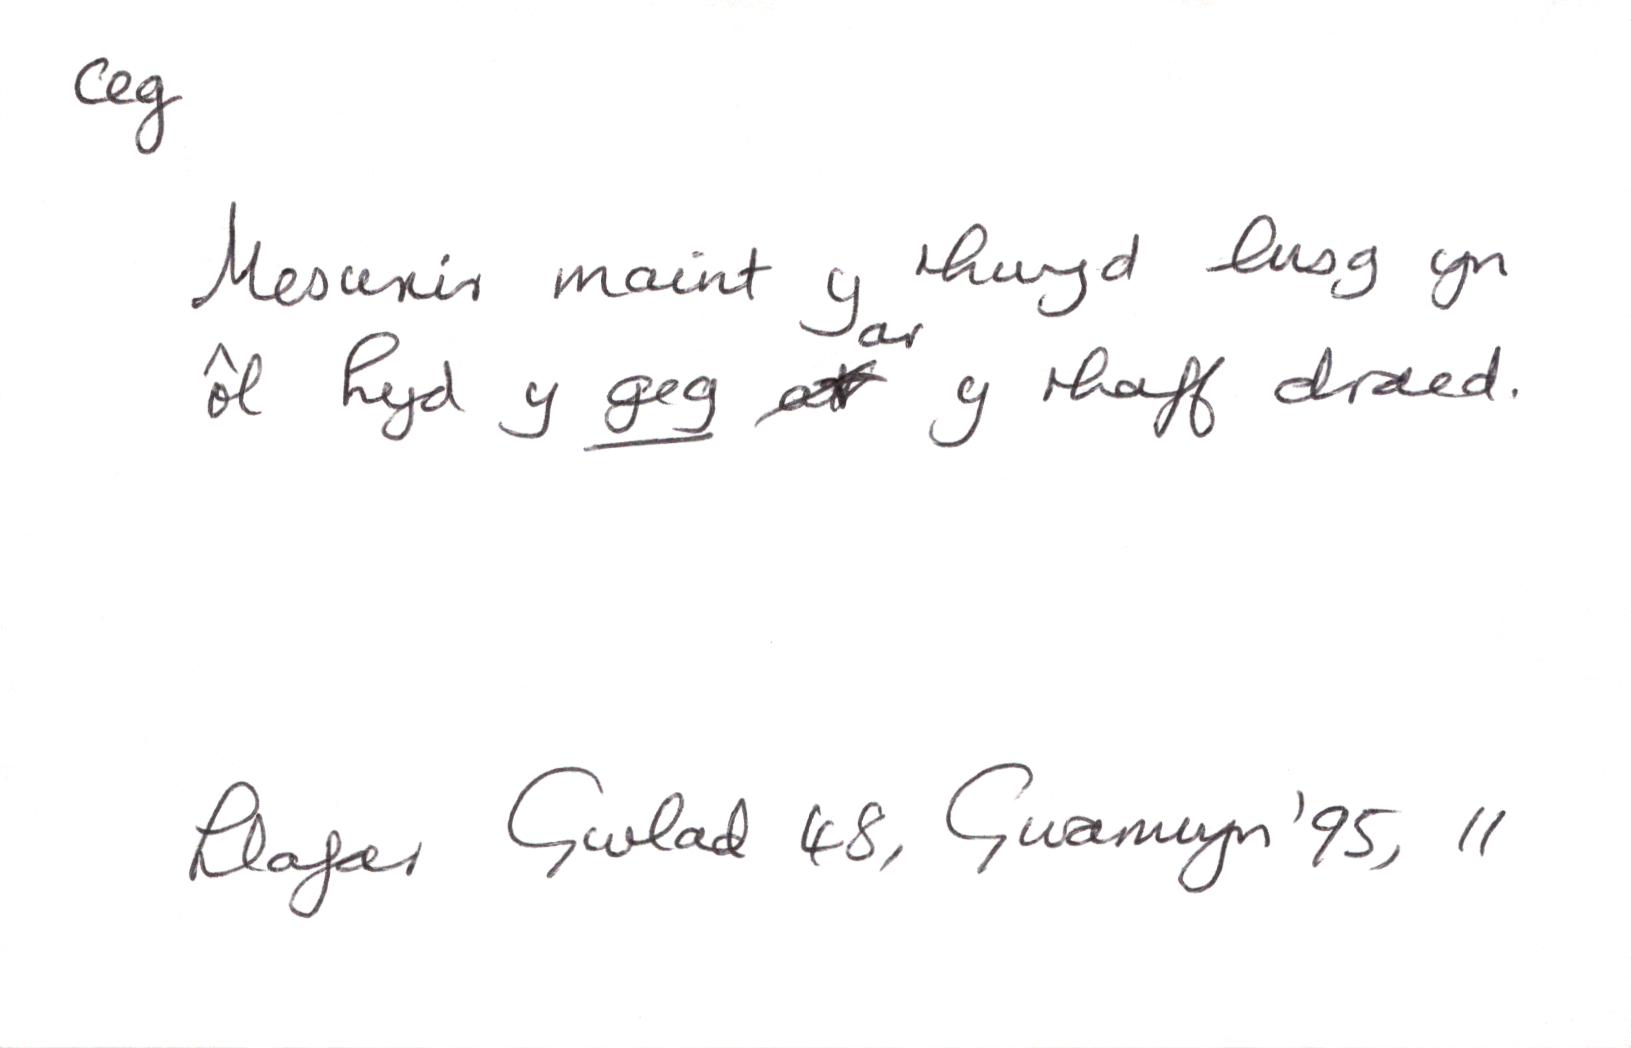 ceg
Mesurir maint y rhwyd lusg yn
ôl hyd y geg ar y rhaff draed.
Llafar Gwlad 48, Gwanwyn '95, 11